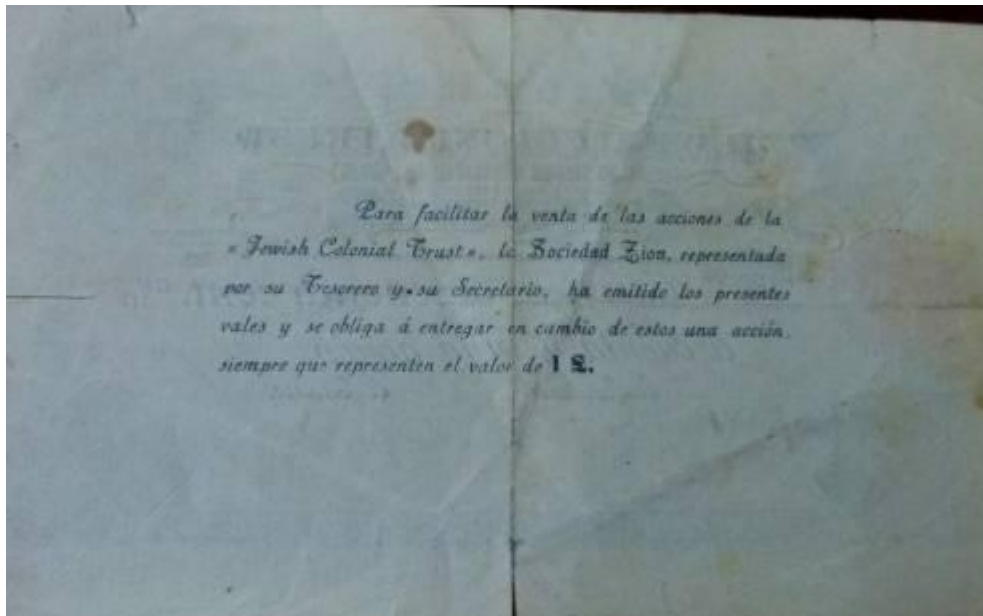 Para facilitar la venta de las acciones de la
« Jewish Colonial Trust », la Sociedad Zion, representada
por su Tesorero y su Secretario, ha emitido los presentes
vales y se obliga á entregar en cambio de estos una acción,
siempre que representen el valor de 1 £.